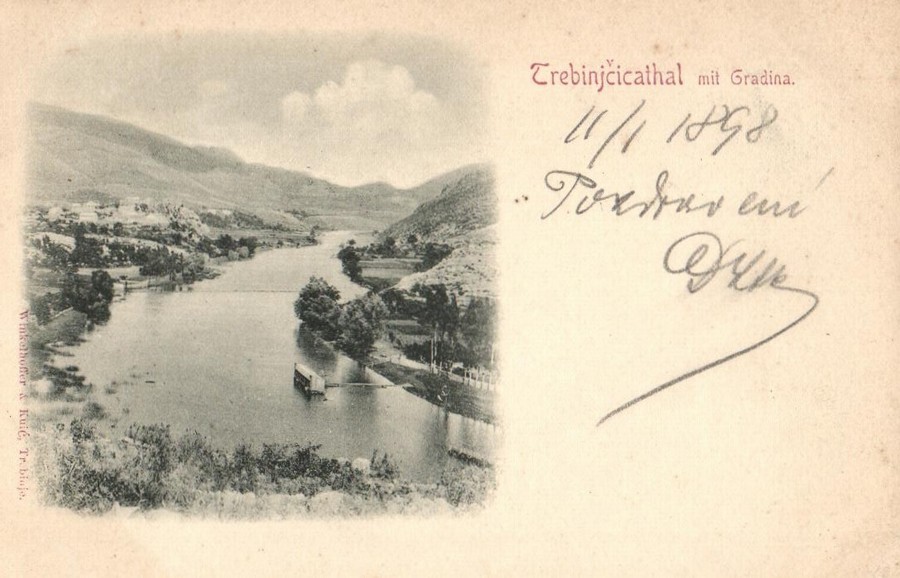 Trebinjčicathal mit Gradina.
11/1 1898
Pozdravení
Winkelhofer & Kuić, Trebinje.